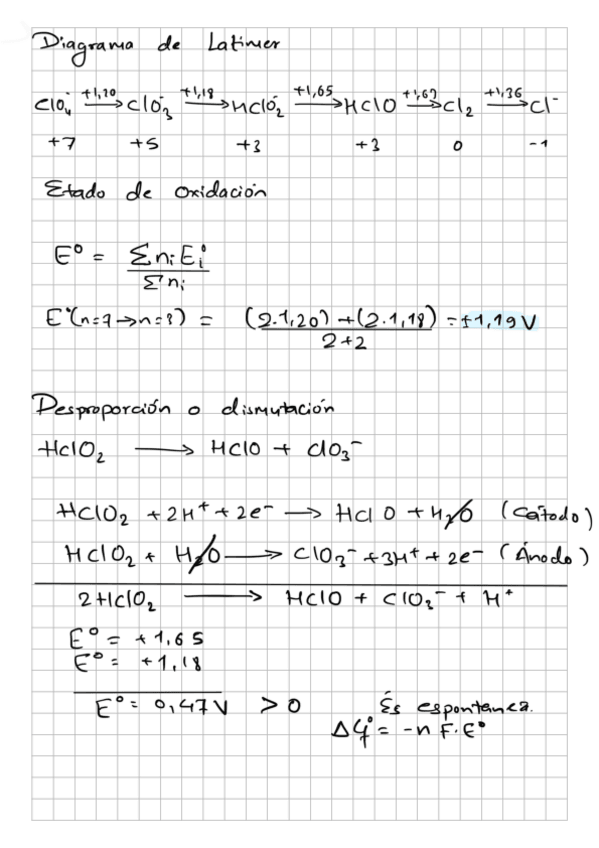 Diagrama de Latimer
ClO₄⁻ —+1,20→ ClO₃⁻ —+1,18→ HClO₂ —+1,65→ HClO —+1,67→ Cl₂ —+1,36→ Cl⁻
+7 +5 +3 +3 0 -1
Estado de oxidación
E⁰ = Σ nᵢ Eᵢ° / Σ nᵢ
E°(n=7→n=3) = (2.1,20) + (2.1,18) / 2+2 = +1,19 V
Desproporción o dismutación
HClO₂ → HClO + ClO₃⁻
HClO₂ + 2H⁺ + 2e⁻ → HClO + H₂O (Cátodo)
HClO₂ + H₂O → ClO₃⁻ + 3H⁺ + 2e⁻ (Ánodo)
2HClO₂ → HClO + ClO₃⁻ + H⁺
E⁰ = +1,65
E⁰ = +1,18
E⁰ = 0,47V > 0 És espontanea.
ΔG° = -n F·E°